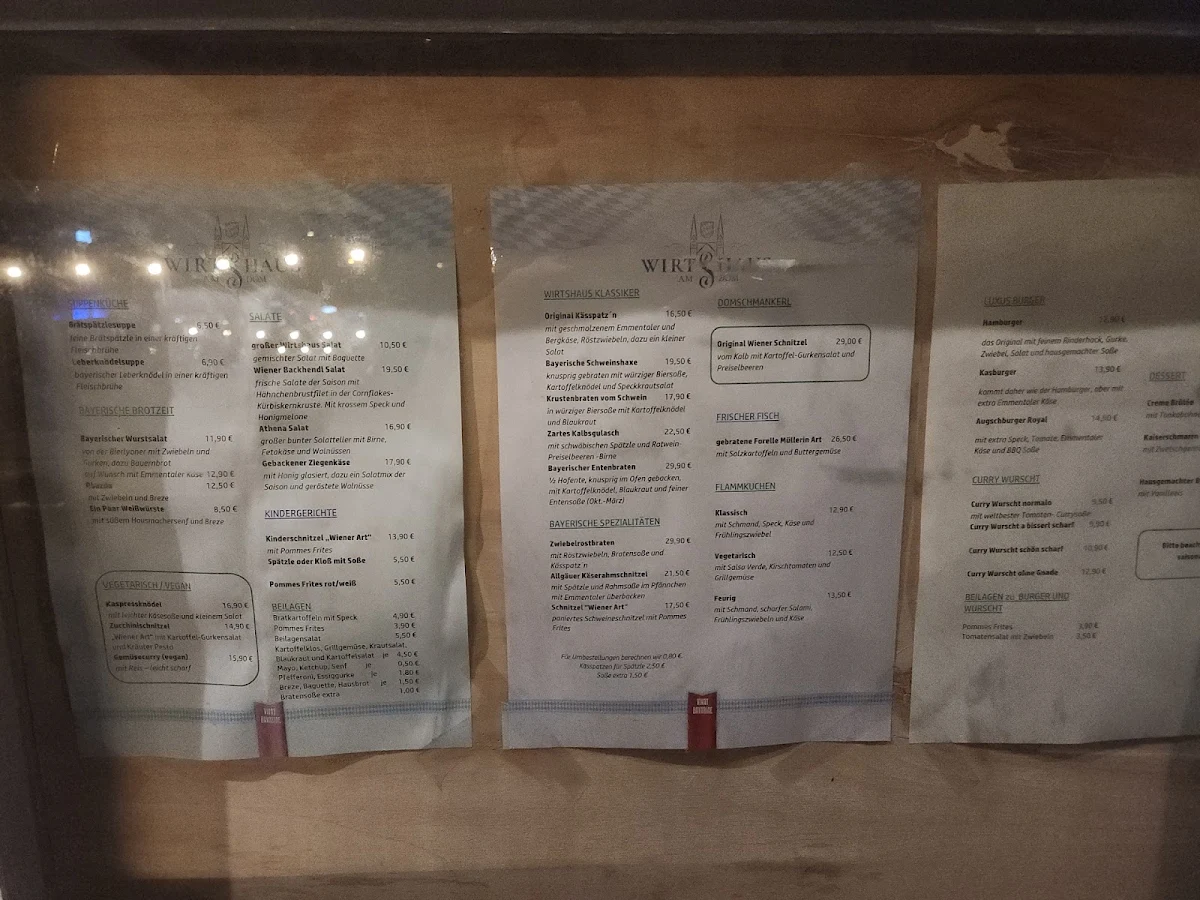 WIRTSHAUS
AM DOM
SUPPENKÜCHE
Brätspätzlesuppe 6,50 €
feine Brätspätzle in einer kräftigen
Fleischbrühe
Leberknödelsuppe 6,90 €
bayerischer Leberknödel in einer kräftigen
Fleischbrühe
BAYERISCHE BROTZEIT
Bayerischer Wurstsalat 11,90 €
von der Bierlyoner mit Zwiebeln und
Gurken, dazu Bauernbrot
auf Wunsch mit Emmentaler Käse 12,90 €
12,50 €
mit Zwiebeln und Breze
Ein Paar Weißwürste 8,50 €
mit süßem Hausmachersenf und Breze
VEGETARISCH / VEGAN
Kaspressknödel 16,90 €
mit leichter Käsesoße und kleinem Salat
Zucchinischnitzel 14,90 €
„Wiener Art" mit Kartoffel-Gurkensalat
und Kräuter Pesto
Gemüsecurry (vegan) 15,90 €
mit Reis – leicht scharf
SALATE
großer Wirtshaus Salat 10,50 €
gemischter Salat mit Baguette
Wiener Backhendl Salat 19,50 €
frische Salate der Saison mit
Hähnchenbrustfilet in der Cornflakes-
Kürbiskernkruste. Mit krossem Speck und
Honigmelone
Athena Salat 16,90 €
großer bunter Salatteller mit Birne,
Fetakäse und Walnüssen
Gebackener Ziegenkäse 17,90 €
mit Honig glasiert, dazu ein Salatmix der
Saison und geröstete Walnüsse
KINDERGERICHTE
Kinderschnitzel „Wiener Art" 13,90 €
mit Pommes Frites
Spätzle oder Kloß mit Soße 5,50 €
Pommes Frites rot/weiß 5,50 €
BEILAGEN
Bratkartoffeln mit Speck 4,90 €
Pommes Frites 3,90 €
Beilagensalat 5,50 €
Kartoffelklos, Grillgemüse, Krautsalat,
Blaukraut und Kartoffelsalat je 4,50 €
Mayo, Ketchup, Senf je 0,50 €
Pfefferoni, Essiggurke je 1,80 €
Breze, Baguette, Hausbrot je 1,50 €
Bratensoße extra 1,00 €
WIRTSHAUS
AM DOM
WIRTSHAUS-KLASSIKER
Original Kässpatz´n 16,50 €
mit geschmolzenem Emmentaler und
Bergkäse, Röstzwiebeln, dazu ein kleiner
Salat
Bayerische Schweinshaxe 19,50 €
knusprig gebraten mit würziger Biersoße,
Kartoffelknödel und Speckkrautsalat
Krustenbraten vom Schwein 17,90 €
in würziger Biersoße mit Kartoffelknödel
und Blaukraut
Zartes Kalbsgulasch 22,50 €
mit schwäbischen Spätzle und Rotwein-
Preiselbeeren -Birne
Bayerischer Entenbraten 29,90 €
½ Hofente, knusprig im Ofen gebacken,
mit Kartoffelknödel, Blaukraut und feiner
Entensoße (Okt.-März)
BAYERISCHE SPEZIALITÄTEN
Zwiebelrostbraten 29,90 €
mit Röstzwiebeln, Bratensoße und
Kässpatz´n
Allgäuer Käserahmschnitzel 21,50 €
mit Spätzle und Rahmsoße im Pfännchen
mit Emmentaler überbacken
Schnitzel "Wiener Art" 17,50 €
paniertes Schweineschnitzel mit Pommes
Frites
Für Umbestellungen berechnen wir 0,80 €.
Kässpatzen für Spätzle 2,50 €
Soße extra 1,50 €
DOMSCHMANKERL
Original Wiener Schnitzel 29,00 €
vom Kalb mit Kartoffel-Gurkensalat und
Preiselbeeren
FRISCHER FISCH
gebratene Forelle Müllerin Art 26,50 €
mit Salzkartoffeln und Buttergemüse
FLAMMKUCHEN
Klassisch 12,90 €
mit Schmand, Speck, Käse und
Frühlingszwiebel
Vegetarisch 12,50 €
mit Salsa Verde, Kirschtomaten und
Grillgemüse
Feurig 13,50 €
mit Schmand, scharfer Salami,
Frühlingszwiebeln und Käse
LUXUS BURGER
Hamburger
das Original mit feinem Rinderhack, Gurke,
Zwiebel, Salat und hausgemachter Soße
Kasburger 13,90 €
kommt daher wie der Hamburger, aber mit
extra Emmentaler Käse
Augschburger Royal 14,50 €
mit extra Speck, Tomate, Emmentaler
Käse und BBQ Soße
CURRY WURSCHT
Curry Wurscht normale 9,50 €
mit weltbester Tomaten- Currysoße
Curry Wurscht a bisserl scharf 9,90 €
Curry Wurscht schön scharf 10,90 €
Curry Wurscht ohne Gnade 12,90 €
BEILAGEN zu BURGER UND
WURSCHT
Pommes Frites 3,90 €
Tomatensalat mit Zwiebeln 3,50 €
DESSERT
Creme Brûlée
Kaiserschmarrn
Hausgemachter
mit Vanilleeis
Bitte